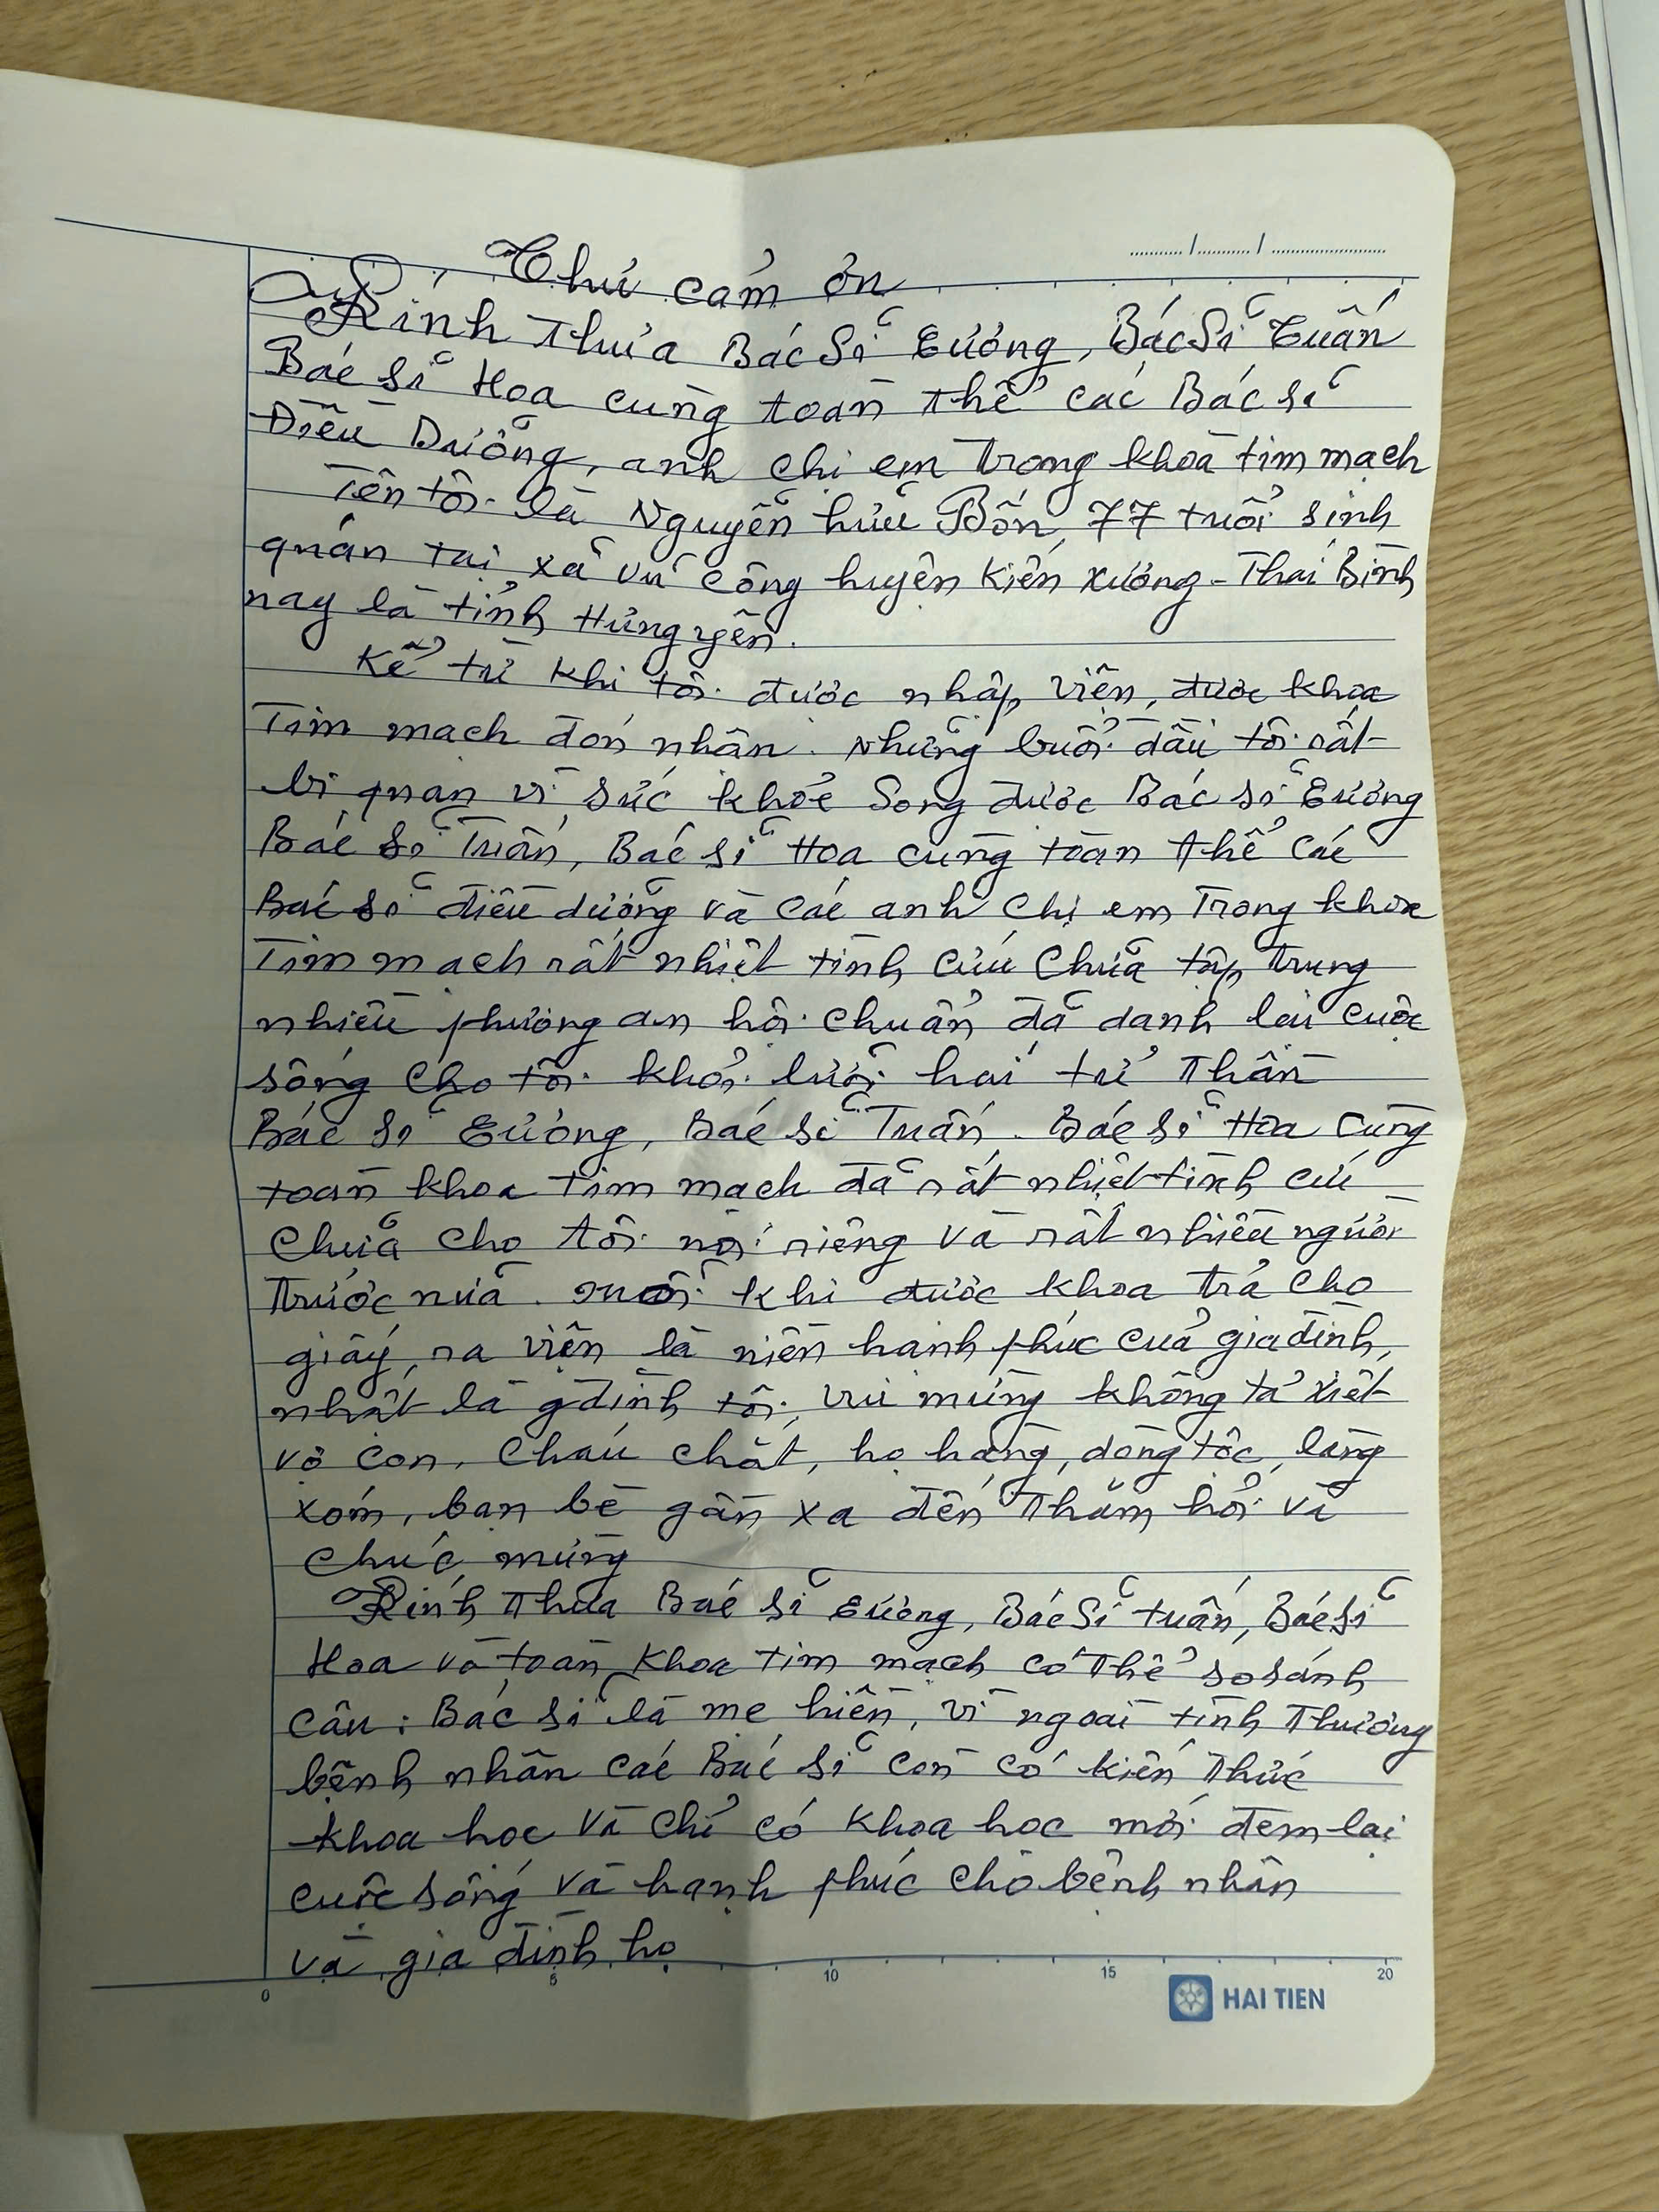 Thư cảm ơn
Kính thưa Bác Sĩ Cương, Bác Sĩ Tuấn
Bác sĩ Hoa cùng toàn thể các Bác sĩ
Điều Dưỡng, anh chị em trong khoa tim mạch
Tên tôi là Nguyễn hữu Bốn, 77 tuổi sinh
quán tại xã vũ công huyện Kiến xương - Thái Bình
nay là tỉnh Hưng yên.
Kể từ khi tôi được nhập viện, được khoa
Tim mạch đón nhận. Những buổi đầu tôi rất
bi quan vì sức khỏe Song được Bác sĩ Cương
Bác sĩ Tuấn, Bác sĩ Hoa cùng toàn thể các
Bác sĩ điều dưỡng và các anh chị em Trong khoa
Tim mạch rất nhiệt tình cứu chữa tập trung
nhiều phương án hội chuẩn đã danh lại cuộc
sống cho tôi khỏi lưỡi hái tử thần
Bác sĩ Cương, Bác sĩ Tuấn. Bác sĩ Hoa cùng
toàn khoa tim mạch đã rất nhiệt tình cứu
chữa cho tôi nói riêng và rất nhiều người
trước nữa. mỗi khi được khoa trả cho
giấy ra viện là niền hạnh phúc của gia đình,
nhất là gđình tôi, vui mừng không tả xiết
vợ con, cháu chắt, họ hàng, dòng tộc, làng
xóm, bạn bè gần xa đến thăm hỏi và
chúc mừng
Kính thưa Bác sĩ Cương, Bác Sĩ tuấn, Bác sĩ
Hoa và toàn khoa tim mạch có thể so sánh
câu: Bác sĩ là mẹ hiền, vì ngoài tình thương
bệnh nhân các Bác sĩ còn có kiến thức
khoa học và chỉ có khoa học mới đem lại
cuộc sống và hạnh phúc cho bệnh nhân
và gia đình họ
0 5 10 15 20
HAI TIEN